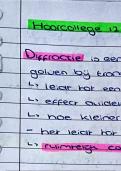 Hoorcollege 12
Diffractie is een
golven bij tran
↳ leidt tot een
↳ effect
↳ hoe kleiner
- het leidt tot
↳ ruimtelijk co